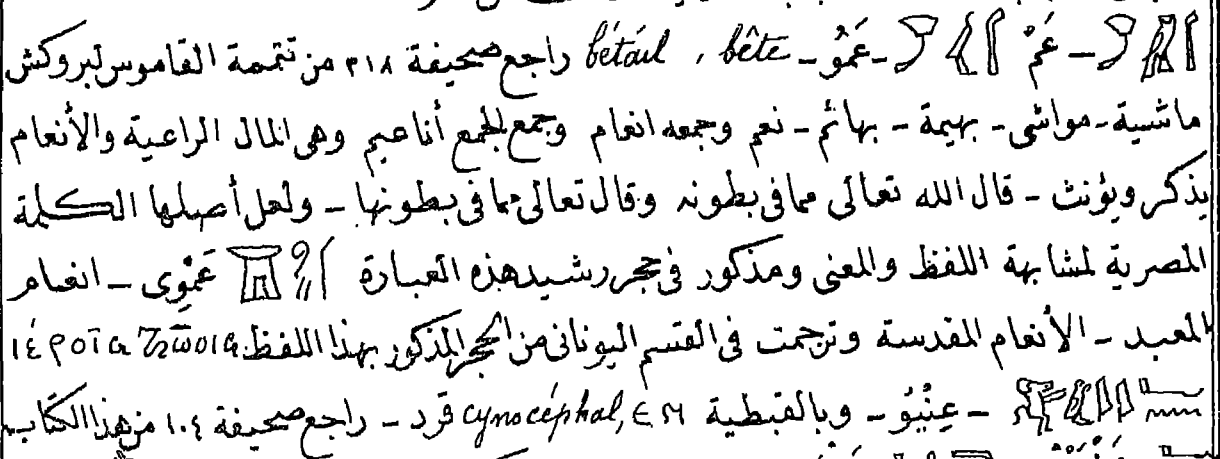 عَمْ – عَمُو – bétail , bête راجع صحيفة ٣١٨ من تتمة القاموس لبروكش
ماشية – مواشى – بهيمة – بهائم – نعم وجمعه انعام وجمع الجمع أناعيم وهى المال الراعية والأنعام
يذكر ويؤنث – قال الله تعالى مما فى بطونه وقال تعالى مما فى بطونها – ولعل أصلها الكلمة
المصرية لمشابهة اللفظ والمعنى ومذكور فى حجر رشيد هذه العبارة عَمْوِى – انعام
المعبد – الأنعام المقدسة وترجمت فى القسم اليونانى من الحجر المذكور بهذا اللفظ
– عِنْيُو – وبالقبطية ⲉⲛ cynocéphal, قرد – راجع صحيفة ١٠٤ من هذا الكتاب